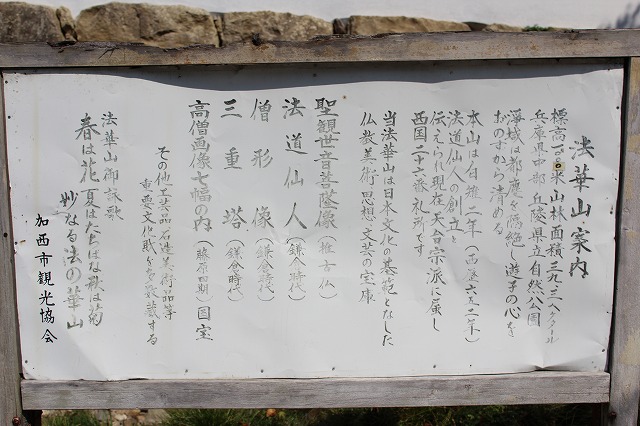 法華山案内
標高一八〇米山林面積三九・三ヘクタール
兵庫県中部丘陵県立自然公園
浄域は都塵を隔絶し遊子の心を
おのずから清める
本山は白雉二年(西暦六五一年)
法道仙人の創立と
伝えられ現在天台宗派に属し
西国二十六番札所です
当法華山は日本文化の基範となした
仏教美術・思想・文芸の宝庫
聖観世音菩薩像(推古仏)
法道仙人(鎌倉時代)
僧形像(鎌倉時代)
三重塔(鎌倉時代)
高僧画像七幅の内(藤原四期)国宝
その他工芸品石造美術品等
重要文化財が多数蔵する
法華山御詠歌
春は花夏はたちばな秋は菊
妙なる法の華山
加西市観光協会